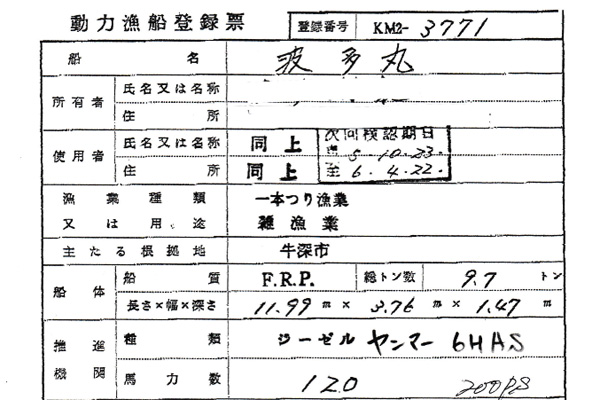 動力漁船登録票 登録番号 KM2-3771
船名 波多丸
所有者 氏名又は名称
住所
使用者 氏名又は名称 同上 次回検認期日
住所 同上 自 5.10.23.
至 6.4.22.
漁業種類 一本つり漁業
又は用途 雑漁業
主たる根拠地 牛深市
船体 船質 F.R.P. 総トン数 9.7 トン
長さ×幅×深さ 11.99 m × 3.76 m × 1.47 m
推進機関 種類 ジーゼル ヤンマー 6HAS
馬力数 120 200PS